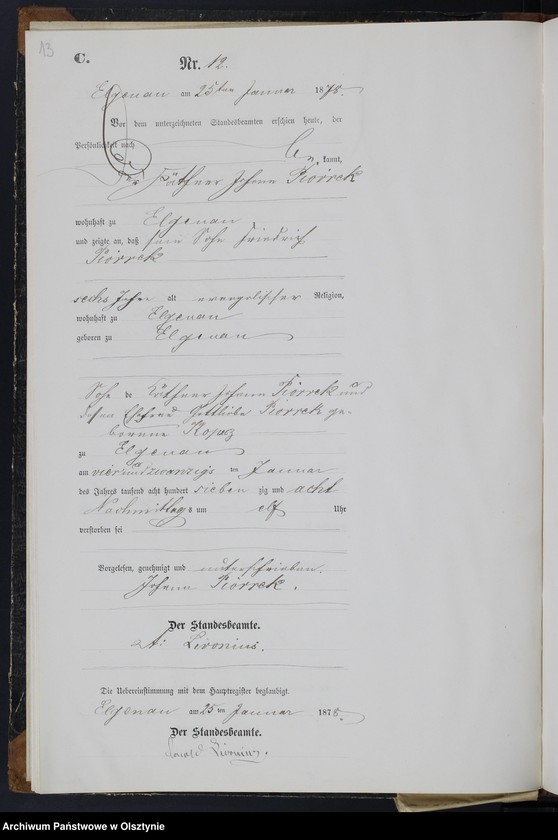 13
C.
Nr. 12.
Elgenau am 25ten Januar 1878.
Vor dem unterzeichneten Standesbeamten erschien heute, der
Persönlichkeit nach
be kannt,
der Käthner Johann Piórrek
wohnhaft zu Elgenau
und zeigte an, daß sein Sohn Friedrich
Piórrek
sechs Jahre alt evangelischer Religion,
wohnhaft zu Elgenau
geboren zu Elgenau
Sohn des Käthner Johann Piórrek und
dessen Ehefrau Gottliebe Piórrek ge-
borenne
zu Elgenau
am vier und zwanzigsten Januar
des Jahres tausend acht hundert sieben zig und acht
Nachmittags um elf Uhr
verstorben sei
Vorgelesen, genehmigt und unterschrieben.
Johann Piórrek.
Der Standesbeamte.
Livonius.
Die Uebereinstimmung mit dem Hauptregister beglaubigt.
Elgenau am 25ten Januar 1878.
Der Standesbeamte.
Livonius.
Archiwum Państwowe w Olsztynie